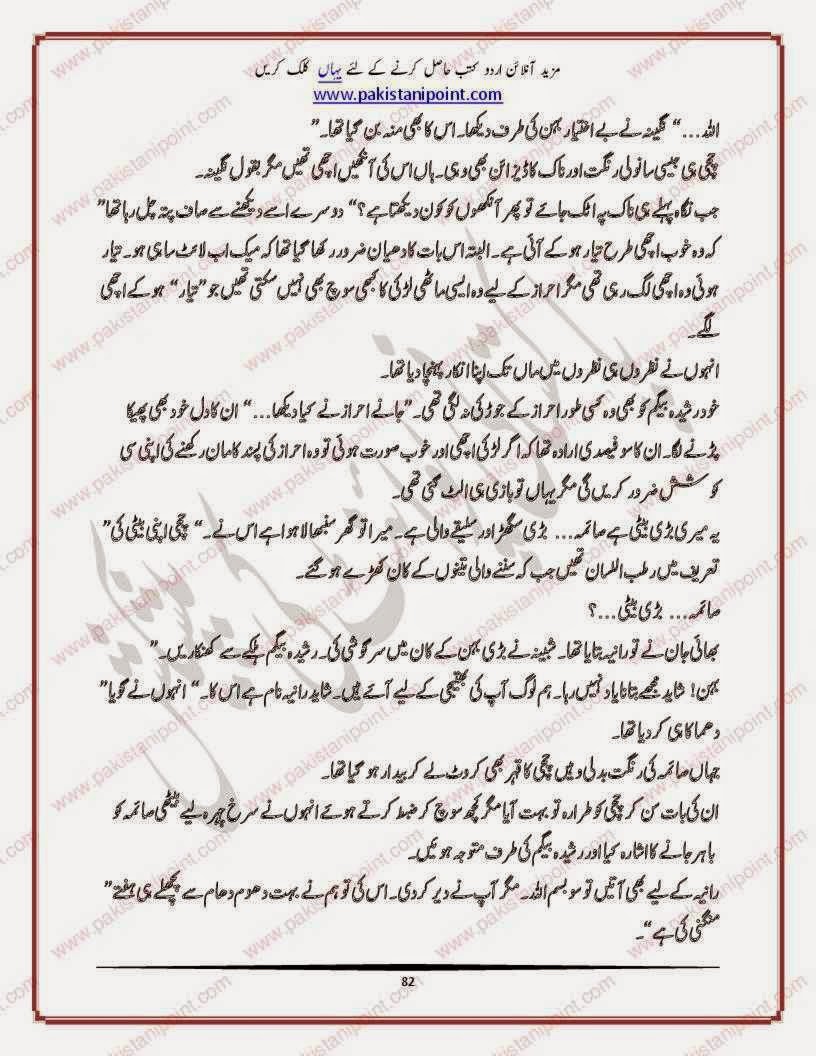 مزید آنلائن اردو کتب حاصل کرنے کے لئے یہاں کلک کریں
www.pakistanipoint.com
اللہ...“ نگینہ نے بے اختیار بہن کی طرف دیکھا۔ اس کا بھی منہ بن گیا تھا۔”
چچی ہی جیسی سانولی رنگت اور ناک کا ڈیزائن بھی وہی۔ ہاں اس کی آنکھیں اچھی تھیں مگر بقول نگینہ۔
جب نگاہ پہلے ہی ناک پہ اٹک جائے تو پھر آنکھوں کو کون دیکھتا ہے؟“ دوسرے اسے دیکھنے سے صاف پتہ چل رہا تھا”
کہ وہ خوب اچھی طرح تیار ہو کے آئی ہے۔ البتہ اس بات کا دھیان ضرور رکھا گیا تھا کہ میک اپ لائٹ سا ہی ہو۔ تیار
ہوئی وہ اچھی لگ رہی تھی مگر احراز کے لیے وہ ایسی ماٹھی لڑکی کا کبھی سوچ بھی نہیں سکتی تھیں جو ”تیار“ ہو کے اچھی
لگے۔
انہوں نے نظروں ہی نظروں میں ماں تک اپنا انکار پہنچا دیا تھا۔
خود رشیدہ بیگم کو بھی وہ کسی طور احراز کے جوڑ کی نہ لگی تھی۔ ”جانے احراز نے کیا دیکھا...“ ان کا دل خود بھی پھیکا
پڑنے لگا۔ ان کا سو فیصدی ارادہ تھا کہ اگر لڑکی اچھی اور خوب صورت ہوئی تو وہ احراز کی پسند کا مان رکھنے کی اپنی سی
کوشش ضرور کریں گی مگر یہاں تو بازی ہی الٹ گئی تھی۔
یہ میری بڑی بیٹی ہے صائمہ... بڑی سگھڑ اور سلیقے والی ہے۔ میرا تو گھر سنبھالا ہوا ہے اس نے۔“ چچی اپنی بیٹی کی”
تعریف میں رطب اللسان تھیں جب کہ سننے والی تینوں کے کان کھڑے ہو گئے۔
صائمہ... بڑی بیٹی...؟
بھائی جان نے تو رانیہ بتایا تھا۔ شبینہ نے بڑی بہن کے کان میں سرگوشی کی۔ رشیدہ بیگم ہلکے سے کھنکاریں۔”
بہن! شاید مجھے بتانا یاد نہیں رہا۔ ہم لوگ آپ کی بھتیجی کے لیے آئے ہیں۔ شاید رانیہ نام ہے اس کا۔“ انہوں نے گویا”
دھماکا ہی کر دیا تھا۔
جہاں صائمہ کی رنگت بدلی وہیں چچی کا قہر بھی کروٹ لے کر بیدار ہو گیا تھا۔
ان کی بات سن کر چچی کو طرارہ تو بہت آیا مگر کچھ سوچ کر ضبط کرتے ہوئے انہوں نے سرخ چہرہ لیے بیٹھی صائمہ کو
باہر جانے کا اشارہ کیا اور رشیدہ بیگم کی طرف متوجہ ہوئیں۔
رانیہ کے لیے بھی آتیں تو سو بسم اللہ۔ مگر آپ نے دیر کر دی۔ اس کی تو ہم نے بہت دھوم دھام سے پچھلے ہی ہفتے”
منگنی کی ہے“۔
82